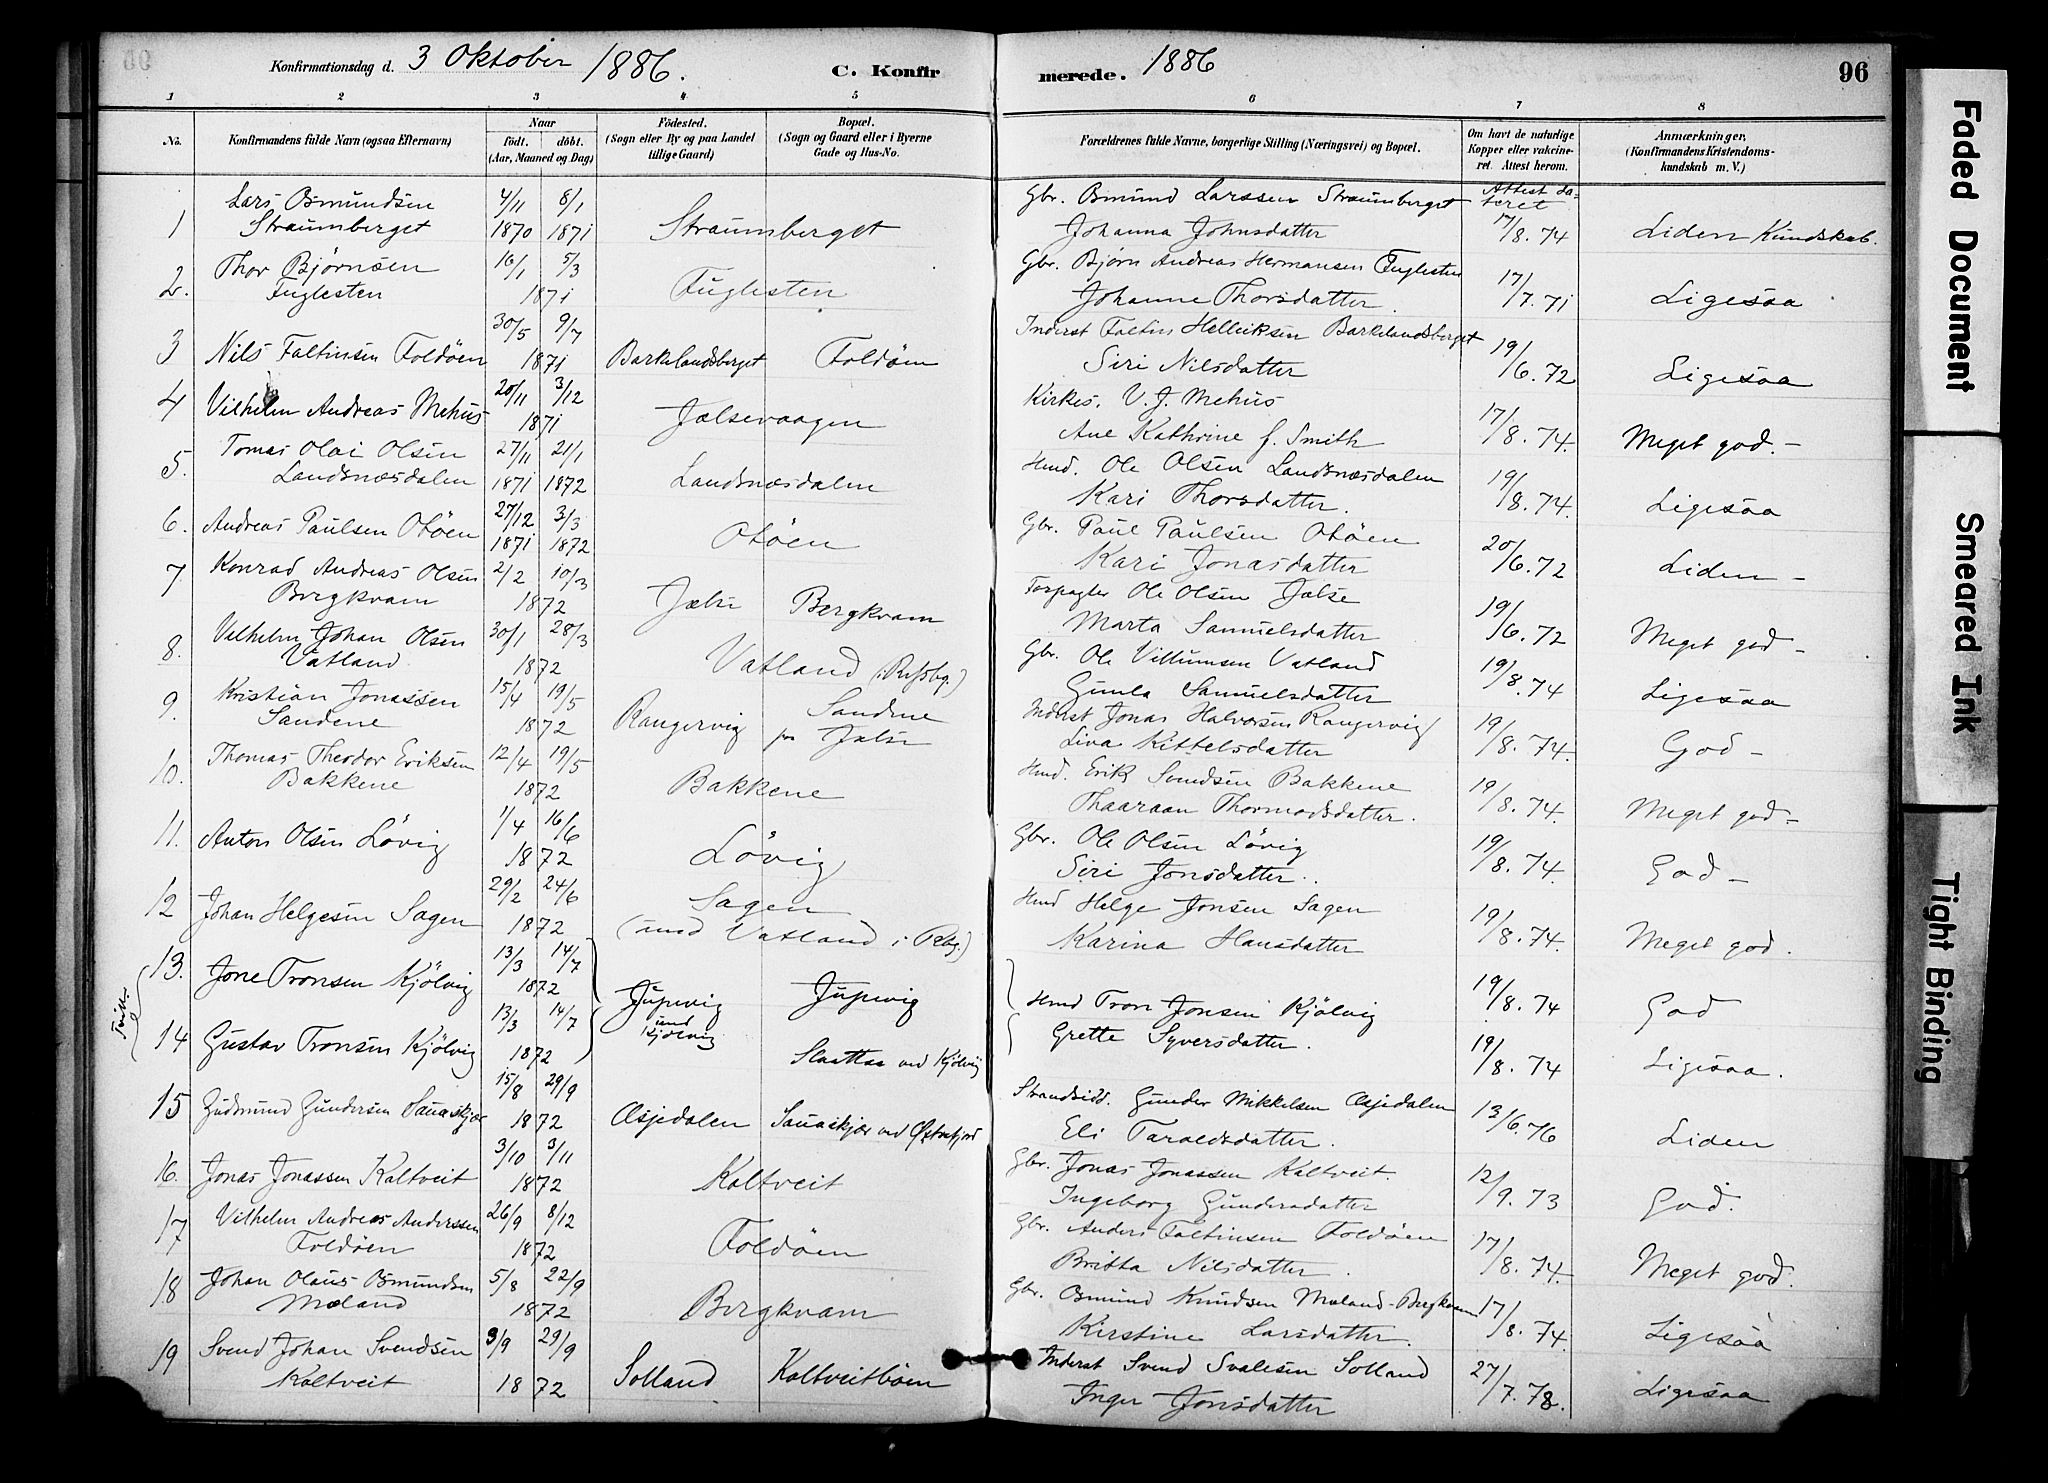 Konfirmationsdag d. 3 Oktober 1886. C. Konfirmerede. 1886 96
1 2 3 4 5 6 7 8
No. Konfirmandens fulde Navn (ogsaa Efternavn) Naar født. døbt. (Aar, Maaned og Dag) Fødested. (Sogn eller By og paa Landet tillige Gaard) Bopæl. (Sogn og Gaard eller i Byerne Gade og Hus-No. Forældrenes fulde Navne, borgerlige Stilling (Næringsvei) og Bopæl. Om havt de naturlige Kopper eller vakcineret. Attest herom. Anmærkninger. (Konfirmandens Kristendomskundskab m. V.)
1 Lars Osmundsen Straumberget 4/11 1870 8/1 1871 Straumsberget Gbr. Osmund Larssen Straumberget Johanna Johnsdatter Attest dateret 17/8. 74 Liden Kundskab.
2. Thor Bjørnsen Fuglesten 16/1 5/3 1871 Fuglesten Gbr. Bjørn Andreas Hermansen Fuglesten Johanne Thorsdatter. 17/7. 71 Ligesaa
3 Nils Faltinsen Foldöen 30/5 9/7 1871 Barkelandsberget Foldöen Inderst Faltin Helliksen Barkelandsberget Siri Nilsdatter 19/6. 72 Ligesaa
4 Vilhelm Andreas Mehus 20/11 3/12 1871 Jælsevaagen Kirkes. V. J. Mehus Ane Kathrine f. Smith 17/8. 74. Meget god.-
5. Tomas Olai Olsen Landsnæsdalen 27/11 1871 21/1 1872 Landsnæsdalen Hmd. Ole Olsen Landsnæsdalen Kari Thorsdatter. 19/8. 74. Ligesaa
6. Andreas Paulsen Otöen 27/12 1871 3/3 1872 Otöen Gbr. Paul Paulsen Otöen Kari Jonasdatter 20/6. 72 Liden -
7 Konrad Andreas Olsen Bergkvam 2/2 10/3 1872 Jælse Bergkvam Forpagter Ole Olsen Jælse Marta Samuelsdatter 19/6. 72 Meget god -
8. Vilhelm Johan Olsen Vatland 30/1 28/3 1872 Vatland Gbr. Ole Villumsen Vatland Gunla Samuelsdatter 19/8. 74 Ligesaa
9. Kristian Jonassen Sandene 15/4 19/5 1872 Rangervig Sandene Jælse Inderst Jonas Halvorsen Rangervig Liva Kittelsdatter 19/8. 74. God -
10. Thomas Theodor Eriksen Bakkene 12/4 19/5 1872 Bakkene Hmd. Erik Svendsen Bakkene Thaaraan Thormodsdatter. 19/8. 74. Meget god -
11. Anton Olsen Lövig 1/4 16/6 1872 Lövig Gbr. Ole Olsen Lövig Siri Jonsdatter. 19/8. 74. God -
12 Johan Helgesen Sagen 29/2 24/6 1872 Sagen (ved Vatland i Rbg.) Hmd Helge Jonsen Sagen Karina Hansdatter 19/8. 74. Meget god.
13. Jone Tronsen Kjölvig 13/3 14/7 1872 Jupevig ved Kjölvig Jupevig Hmd Tron Jonsen Kjölvig Grette Syversdatter. 19/8. 74 God
Tvill.
14 Gustav Tronsen Kjölvig 13/3 14/7 1872 Slaattaa ved Kjölvig 19/8. 74 Ligesaa.
15 Gudmund Gundersen Sauaskjær 15/8 29/9 1872 Æsjedalen Sauaskjær ved Østrefjord Strandsidd. Gunder Mikkelsen Æsjedalen Eli Taraldsdatter. 13/6. 76 Liden
16. Jonas Jonassen Kaltveit 3/10 3/11 1872 Kaltveit Gbr. Jonas Jonassen Kaltveit. Ingeborg Gundersdatter 12/9. 73 God.
17 Vilhelm Andreas Anderssen Foldöen 26/9 8/12 1872 Foldöen Gbr. Anders Faltinsen Foldöen Britta Nilsdatter. 17/8. 74. Meget god.
18 Johan Olaus Osmundsen Mæland 5/8 22/9 1872 Bergkvam Gbr. Osmund Knudsen Mæland-Bergkvam Kirstine Larsdatter. 17/8. 74. Ligesaa
19 Svend Johan Svendsen Kaltveit 3/9 29/9 1872 Solland Kaltveitböen Inderst Svend Svalesen Solland Inger Jonsdatter 27/7. 78. Ligesaa
Faded Document
Smeared Ink
Tight Binding